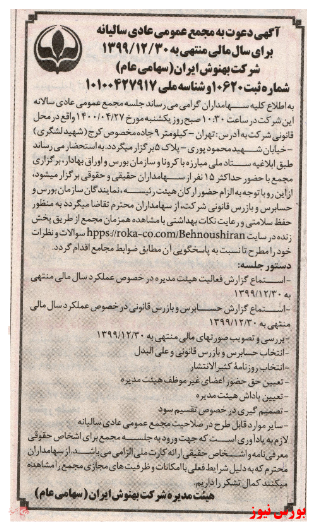 آگهی دعوت به مجمع عمومی عادی سالیانه
برای سال مالی منتهی به ۱۳۹۹/۱۲/۳۰
شرکت بهنوش ایران (سهامی عام)
شماره ثبت ۱۰۶۲۰ و شناسه ملی ۱۰۱۰۰۴۲۷۹۱۷
به اطلاع کلیه سهامداران گرامی می رساند جلسه مجمع عمومی عادی سالانه
این شرکت در ساعت ۱۰:۳۰ صبح روز یکشنبه مورخ ۱۴۰۰/۰۴/۲۷ واقع در محل
قانونی شرکت به آدرس: تهران - کیلومتر ۹ جاده مخصوص کرج (شهید لشگری)
- خیابان شهید محمودپوری - پلاک ۵ برگزار میگردد. به استحضار می رساند
طبق ابلاغیه ستاد ملی مبارزه با کرونا و سازمان بورس و اوراق بهادار، برگزاری
مجمع با حضور حداکثر ۱۵ نفر از سهامداران حقیقی و حقوقی برگزار میشود،
از این رو با توجه به الزام حضور ارکان هیئت رئیسه، نمایندگان سازمان بورس و
حسابرس و بازرس قانونی شرکت، از سهامداران محترم تقاضا میگردد به منظور
حفظ سلامتی و رعایت نکات بهداشتی با مشاهده همزمان مجمع از طریق پخش
زنده در سایت hpps://roka-co.com/Behnoushiran سوالات و نظرات
خود را مطرح تا نسبت به پاسخگویی آن مطابق ضوابط مجامع اقدام گردد.
دستور جلسه:
- استماع گزارش فعالیت هیئت مدیره در خصوص عملکرد سال مالی منتهی
به ۱۳۹۹/۱۲/۳۰
- استماع گزارش حسابرس و بازرس قانونی در خصوص عملکرد سال مالی
منتهی به ۱۳۹۹/۱۲/۳۰
- بررسی و تصویب صورتهای مالی منتهی به ۱۳۹۹/۱۲/۳۰
- انتخاب حسابرس و بازرس قانونی و علی البدل
- انتخاب روزنامه کثیرالانتشار
- تعیین حق حضور اعضای غیر موظف هیئت مدیره
- تعیین پاداش هیئت مدیره
- تصمیم گیری در خصوص تقسیم سود
- سایر موارد قابل طرح در صلاحیت مجمع عمومی عادی سالیانه
لازم به یادآوری است که جهت ورود به جلسه مجمع برای اشخاص حقوقی
معرفی نامه و اشخاص حقیقی ارائه کارت ملی الزامی می باشد. از سهامداران
محترم که به دلیل شرایط فعلی با امکانات و ظرفیت های مجازی مجمع را مشاهده
میکنند کمال تشکر را داریم.
هیئت مدیره شرکت بهنوش ایران (سهامی عام)
بورس نیوز